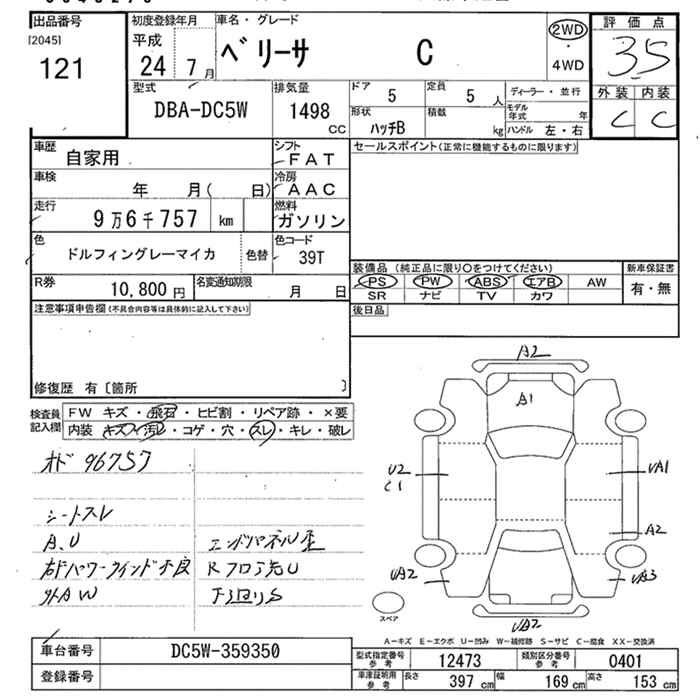 出品番号
[2045]
121
初度登録年月
平成
24 7月
車名・グレード
ベリーサ C
2WD
・
4WD
評価点
3.5
外装 内装
C C
型式
DBA-DC5W
排気量
1498
CC
ドア
5
定員
5 人
形状
ハッチB
積数
kg
ディーラー・並行
モデル年式 年
ハンドル 左・右
車歴
自家用
シフト
FAT
車検
年 月( 日)
冷房
AAC
走行
9万6千757 km
燃料
ガソリン
色
ドルフィングレーマイカ
色替
色コード
39T
R券
10,800 円
名変通知期限
月 日
セールスポイント(正常に機能するものに限ります)
装備品(純正品に限り○をつけてください)
新車保証書
PS PW ABS エアB AW
有・無
SR ナビ TV カワ
後日品
注意事項申告欄(不具合内容等は具体的に記入して下さい)
修復歴 有〔箇所 〕
検査員記入欄
FW キズ・飛石・ヒビ割・リペア跡・×要
内装 キズ・汚レ・コゲ・穴・スレ・キレ・破レ
オド 96757
シートスレ
A、U
エンドパネル歪
右ドパワーウインド不良
Rフロア先U
外AW
下廻りS
A2
A1
U2
C1
UA1
A2
UA2
UA3
UA2
スペア
A-キズ E-エクボ U-凹み W-補修跡 S-サビ C-腐食 XX-交換済
車台番号
DC5W-359350
登録番号
型式指定番号参考
12473
類別区分番号参考
0401
車庫証明用参考
長さ 397 cm
幅 169 cm
高さ 153 cm